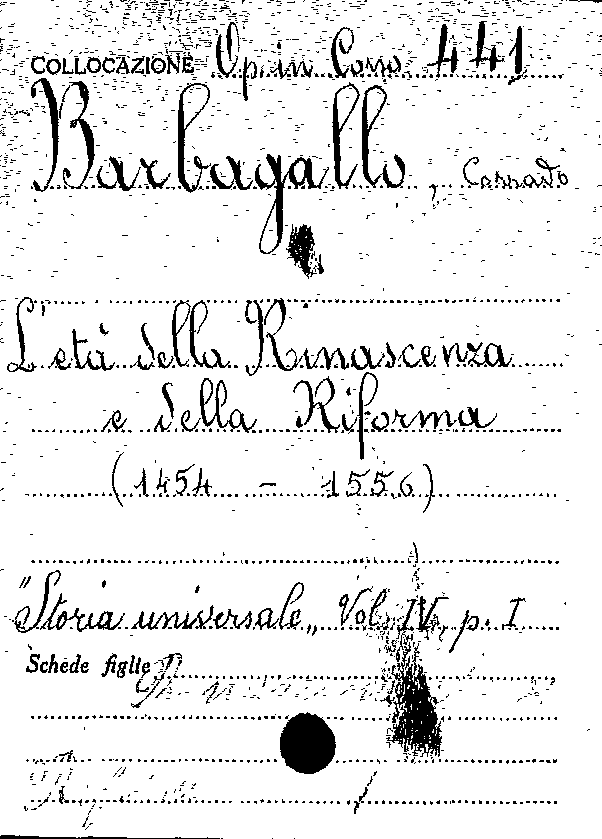 COLLOCAZIONE Op. in Cons. 441
Barbagallo, Corrado
L'età della Rinascenza
e della Riforma
(1454 - 1556)
"Storia universale„ Vol. IV, p. I
Schede figlie